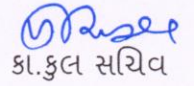 કા.કુલ સચિવ